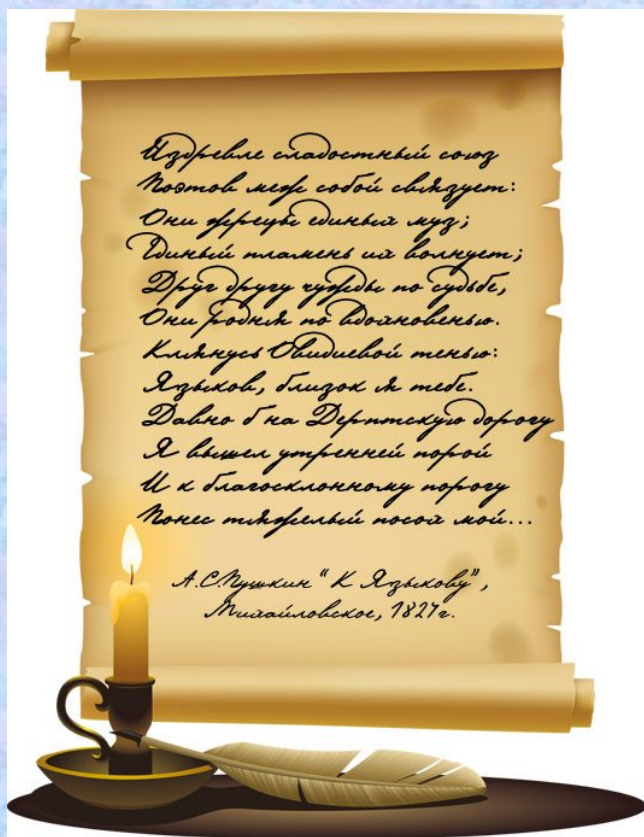 Издревле сладостный союз
Поэтов меж собой связует:
Они жрецы единых муз;
Единый пламень их волнует;
Друг другу чужды по судьбе,
Они родня по вдохновенью.
Клянусь Овидиевой тенью:
Языков, близок я тебе.
Давно б на Дерптскую дорогу
Я вышел утренней порой
И к благосклонному порогу
Понес тяжелый посох мой...
А.С.Пушкин "К Языкову",
Михайловское, 1824г.